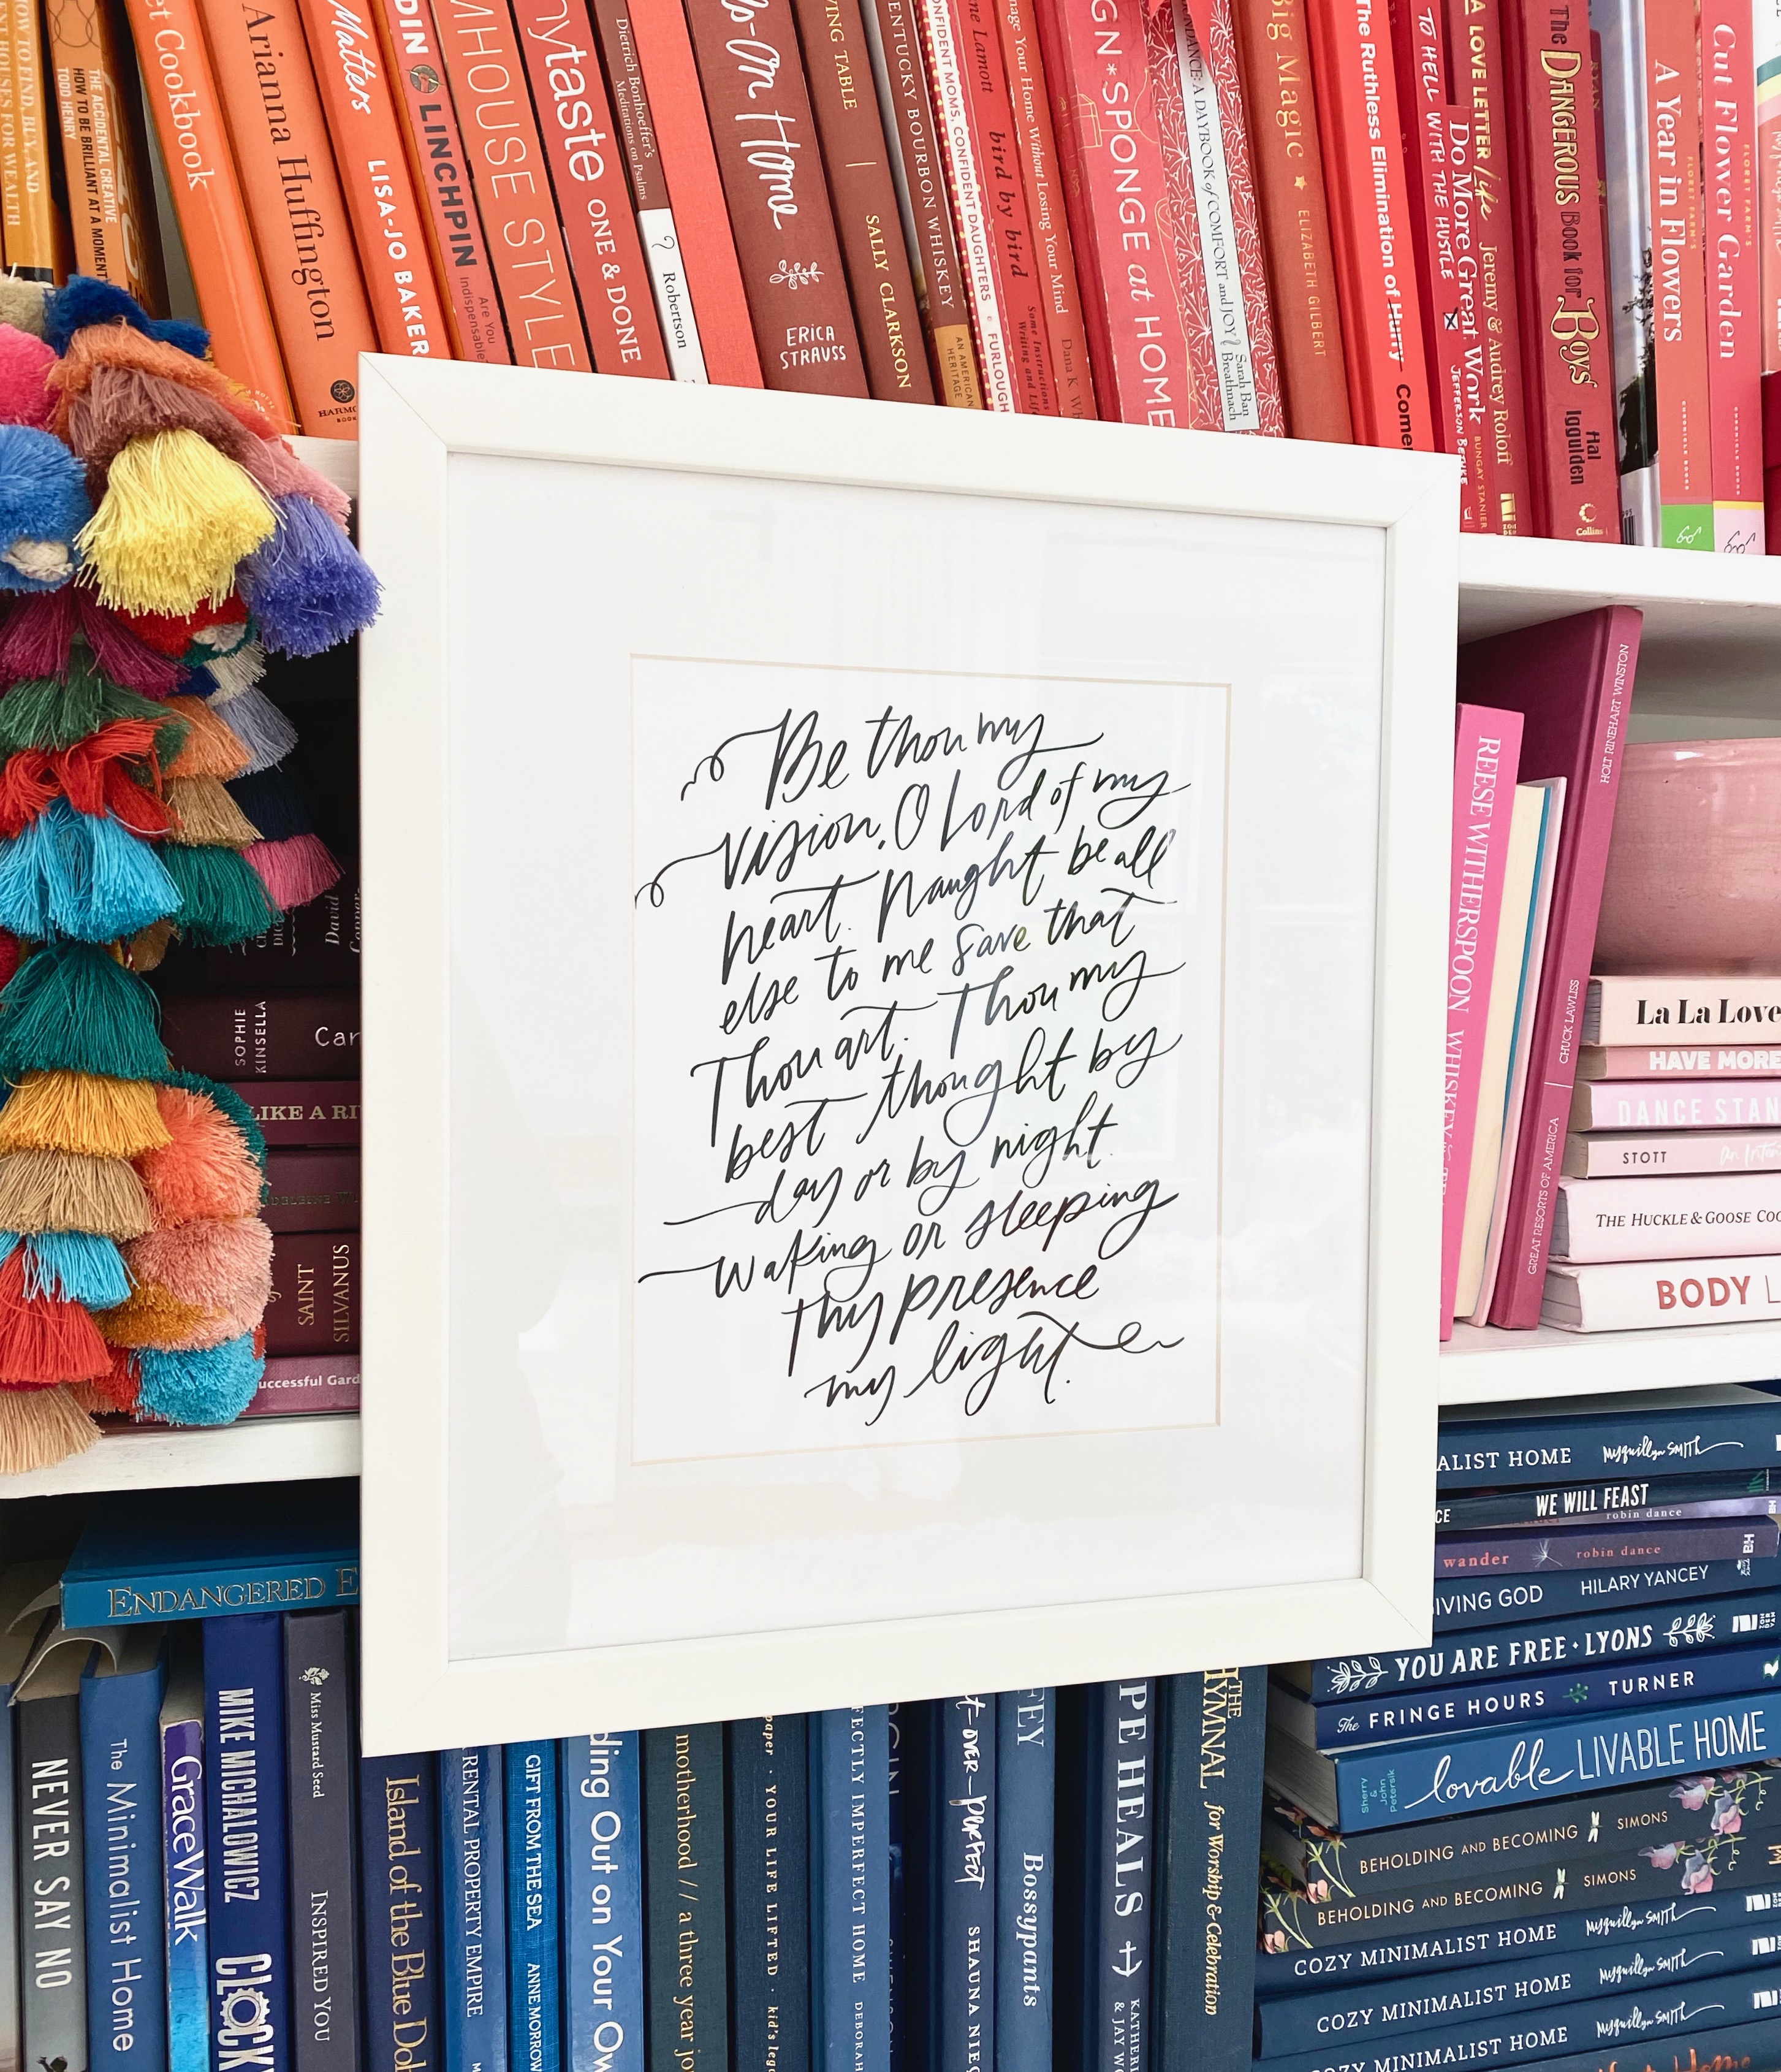 HOW TO FIND, BUY, AND
HOUSES FOR WEALTH
THE ACCIDENTAL CREATIVE
HOW TO BE BRILLIANT AT A MOMENT
TODD HENRY
et Cookbook
Arianna Huffington
HARMO
BOOK
Matters LISA-JO BAKER
DIN LINCHPIN Are You Indispensable
MHOUSE STYLE
mytaste ONE & DONE
Dietrich Bonhoeffer's
Meditations on Psalms
Robertson
On Home ERICA STRAUSS
VING TABLE | SALLY CLARKSON
ENTUCKY BOURBON WHISKEY AN AMERICAN HERITAGE
ONFIDENT MOMS, CONFIDENT DAUGHTERS FURLOUGH
ne Lamott bird by bird Some Instructions Writing and Lif
nage Your Home Without Losing Your Mind Dana K. W
GN*SPONGE at HOME
NDANCE: A DAYBOOK of COMFORT and JOY Sarah Ban Breathnach
Big Magic ELIZABETH GILBERT
The Ruthless Elimination of Hurry Comer
TO HELL WITH THE HUSTLE JEFFERSON BETHKE
Do More Great Work BUNGAY STANIER
A LOVE LETTER Life Jeremy & Audrey Roloff
The DANGEROUS BOOK for Boys Hal Iggulden Collins
RYAN
FLORET FARM'S
A Year in Flowers
FLORET FARM'S
Cut Flower Garden
Be thou my
vision, O Lord of my
heart. Naught be all
else to me save that
Thou art. Thou my
best thought by
day or by night.
Waking or sleeping
Thy presence
my light.
David Copper-
SOPHIE KINSELLA Car
LIKE A RI
ADELEINE W
SAINT SILVANUS
uccessful Gard
REESE WITHERSPOON WHISKEY
HOLT RINEHART WINSTON
CHUCK LAWLISS
GREAT RESORTS OF AMERICA
La La Love
HAVE MORE
DANCE STAN
STOTT An Inten
THE HUCKLE & GOOSE COO
BODY L
ALIST HOME Myquillyn SMITH
CE WE WILL FEAST
robin dance
wander robin dance BH
IVING GOD HILARY YANCEY
YOU ARE FREE · LYONS
The FRINGE HOURS TURNER
Sherry & John Petersik lovable LIVABLE HOME
BEHOLDING AND BECOMING SIMONS
BEHOLDING AND BECOMING SIMONS
COZY MINIMALIST HOME Myquillyn SMITH
COZY MINIMALIST HOME Myquillyn SMITH
COZY MINIMALIST HOME Myquillyn SMITH
ENDANGERED E
NEVER SAY NO
The Minimalist Home
GraceWalk
MIKE MICHALOWICZ CLOCK
Miss Mustard Seed INSPIRED YOU
Island of the Blue Dol
RENTAL PROPERTY EMPIRE
GIFT FROM THE SEA ANNE MORROW
ding Out on Your Ow
motherhood // a three year jo
paper · YOUR LIFE LIFTED · kid's lega
FECTLY IMPERFECT HOME DEBORAH
t-OVER-PERFECT SHAUNA NIEQ
FEY Bossypants
PE HEALS KATHERI & JAY WO
THE HYMNAL for Worship & Celebration